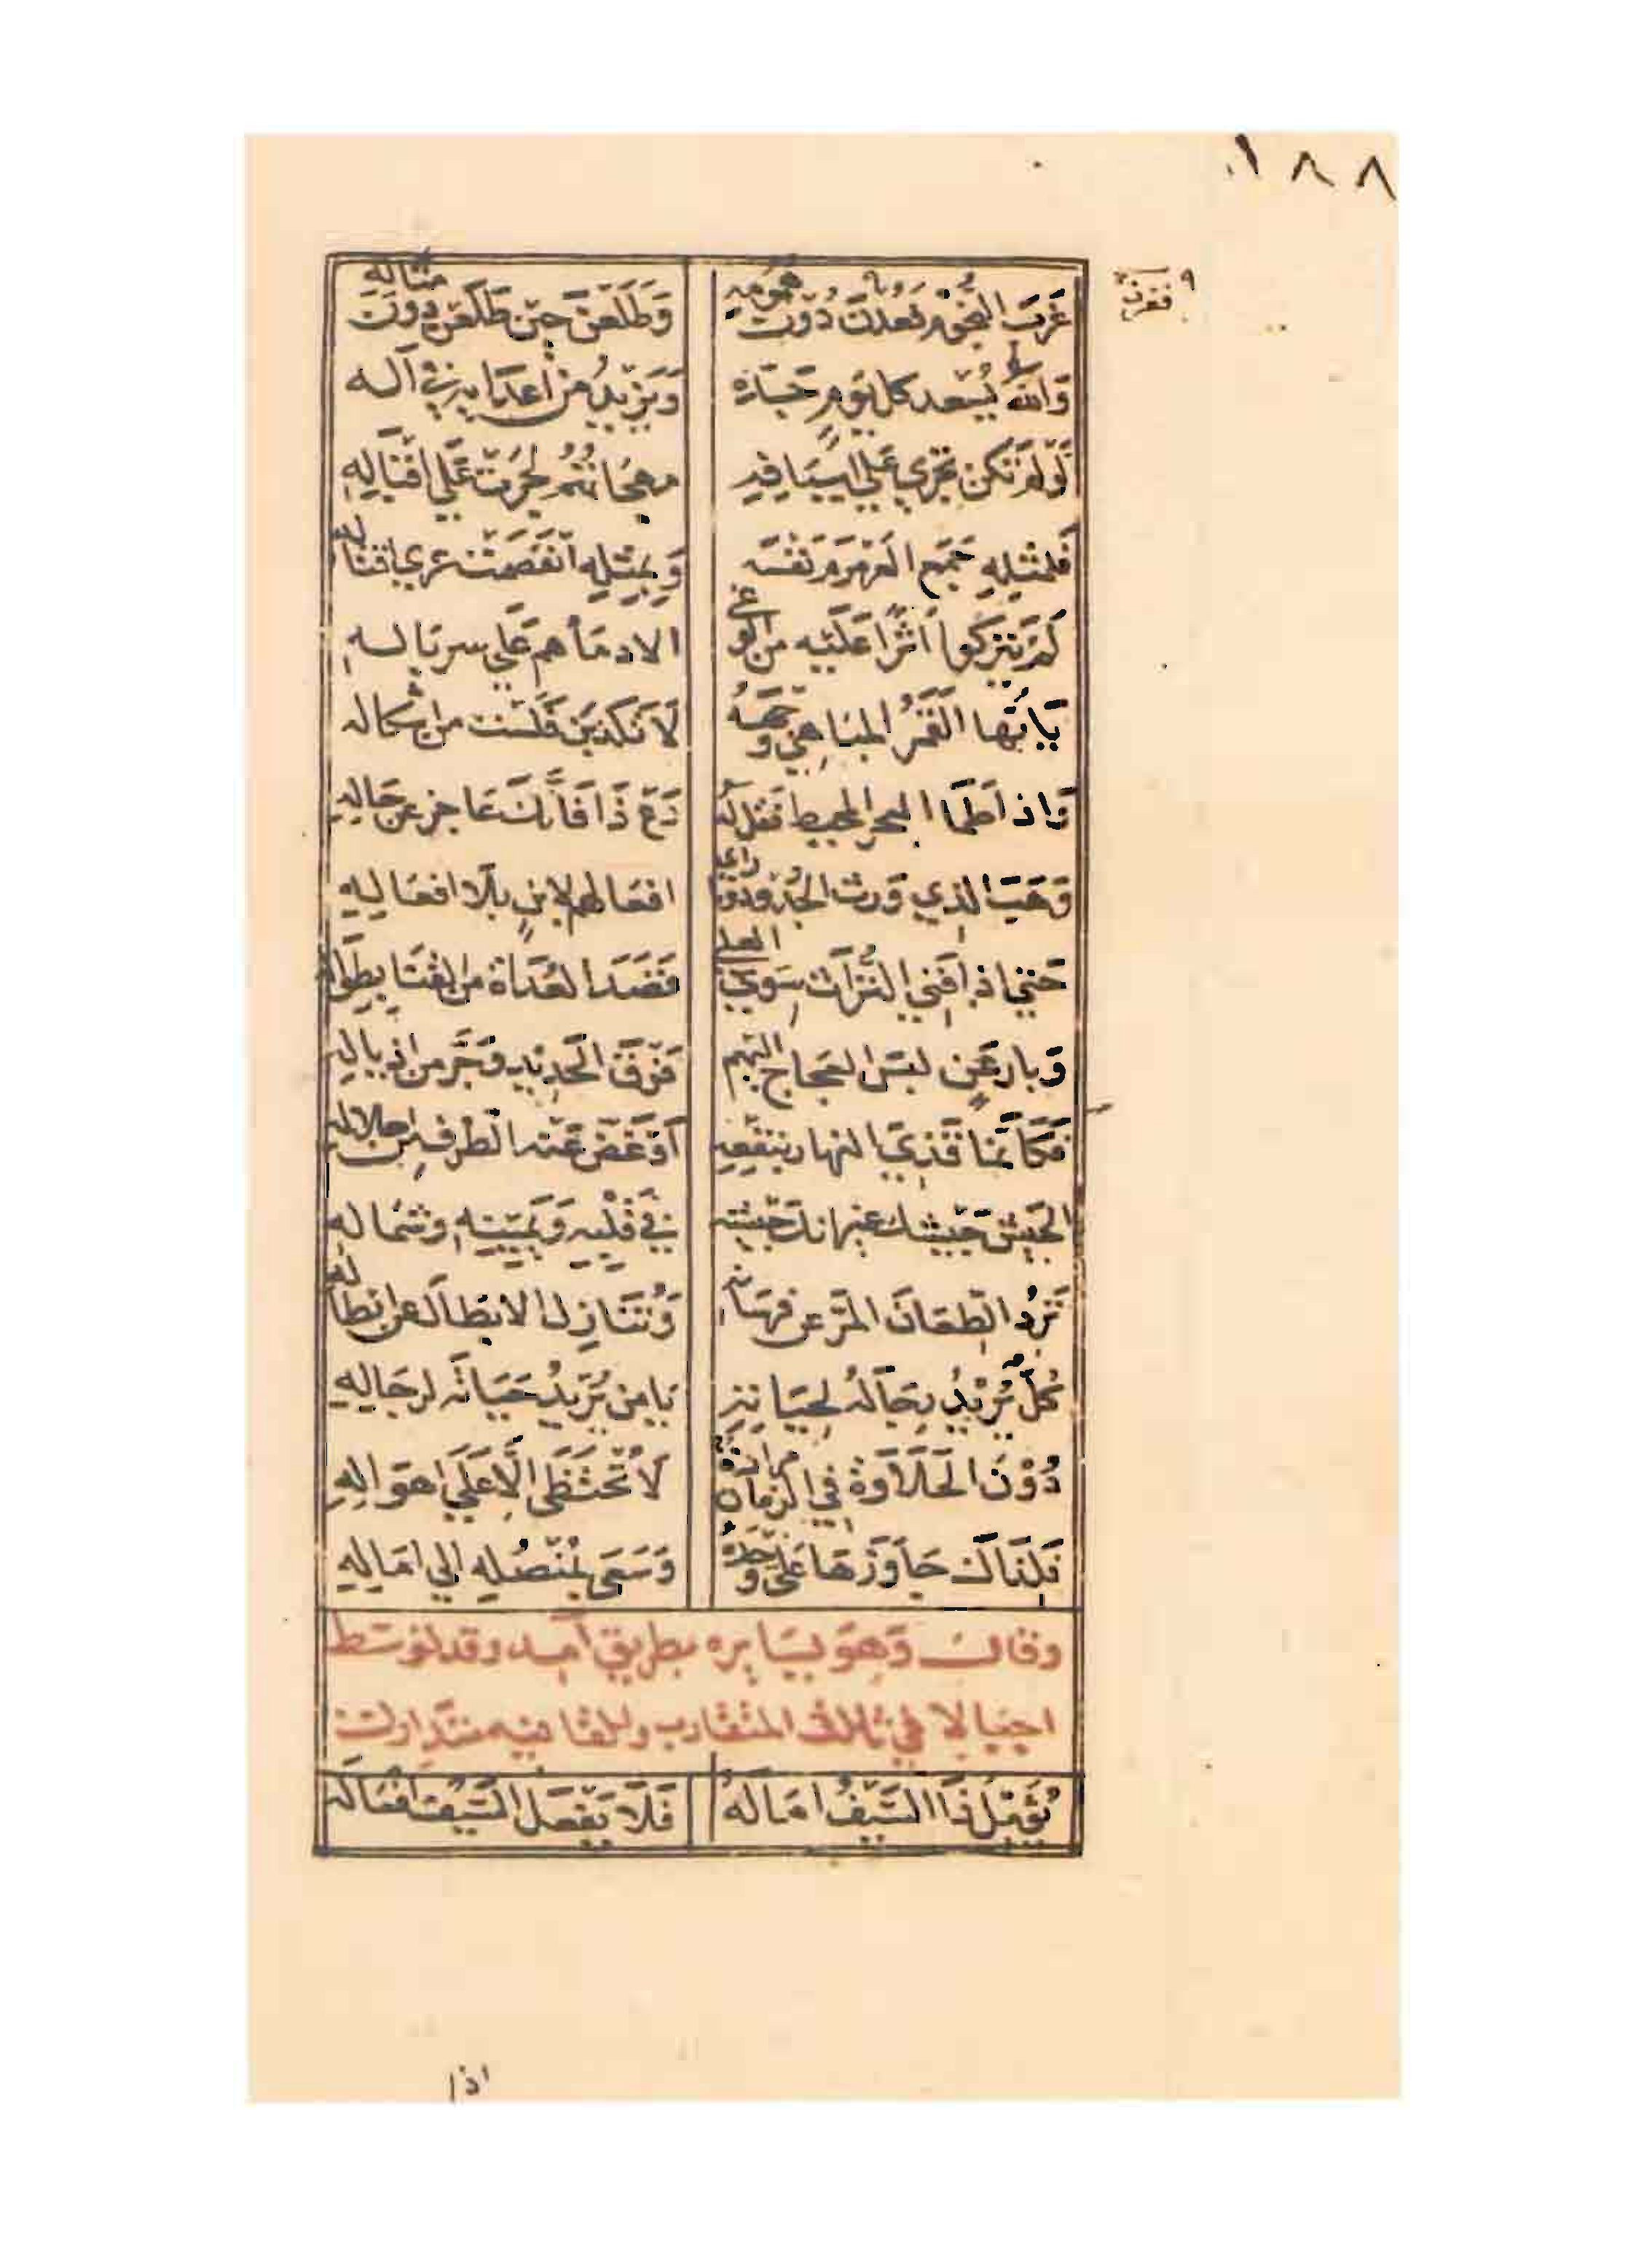 ١٨٨
غَرَبَ النُّجُومُ فَعُدْنَ دُوْنَ هُمُومِهِ وَطَلَعْنَ حِيْنَ طَلَعْنَ دُونَ مَنَالِهِ
فغرن
وَاللهُ يُسْعِدُ كل يَوْمٍ جَدّهُ وَيَزِيْدُ مِنْ أعدَايهِ فِي آلــه
لَوْ لَمْ تَكُن تَجْرِي عَلَى اسْيَافِهِ مهجَاتُهُمْ لَجَرَتْ عَلَى اقْبَالِهِ
فَلمثلِهِ جَمَع العَرَمْرَمُ نَفْسَه وَبِمِثْلِهِ انْفَصَمَتْ عري اقتَالِهِ
لَمْ يَتْركُوا أثَرًا عَلَيْهِ من الوغي الا دمَاهم عَلَي سربَالــهِ
يَا أيُّها القَمَرُ المُبَاهِي وَجْهَهُ لَا تكذبَن فَلَسْت من اشكاله
وَاذا طَمَا البحر المحيط فَقل لَهُ دَعْ ذَا فَأنّكَ عَاجز عن حَالِهِ
وَهَبَ الذي وَرِث الجُدُودَ وَمَا رأي افعَالهم لابنٍ بلَا افعَالِهِ
حَتي اذا فَنِي التُّرَاث سِوَي العلي قَصَدَ العُدَاةَ من القنَا بِطِوَالِهِ
وَبارعَنٍ لبسَ العَجَاج اليهم فَوْقَ الحَدِيْدِ وَجَر من اذيالِهِ
فَكَأنّمَا قَذِيَ النهار بنَقْعِهِ أوْ غَضّ عَنْه الطّرف من اجلالِهِ
الجَيْش جَيْشك غير انك جَيْشه فِي قَلْبِه وَيَمِيْنِهِ وشمَالِهِ
تَرِدُ الطِّعَانَ المُرّ عن فرسَانِهِ وَتُنَازِل الابْطَال عن ابْطَالِهِ
كُلٌّ يُرِيْدُ رِجَالَهُ لِحَيَاتِهِ يَا من يُرِيْدُ حَيَاتَه لرجَالِهِ
دُوْنَ الحَلَاوَةِ فِي الزمَان مرارة لَا تُخْتَطَى إلَّا عَلَي اهوَالِهِ
فَلِذَاكَ جَاوَزَهَا عَلِيّ وَحْدَهُ وَسَعَى بمُنْصُلِهِ الي امَالِهِ
وقال وَهوَ يسَايره بطريق آمد وقد توسط
اجبالا في ثالث المتقارب والقافيه متدارك
يُؤَمِّلُ ذَا السَّيْفُ امَالَهُ فَلَا يَفْعَل السَّيْف افْعَالَهُ
اذا